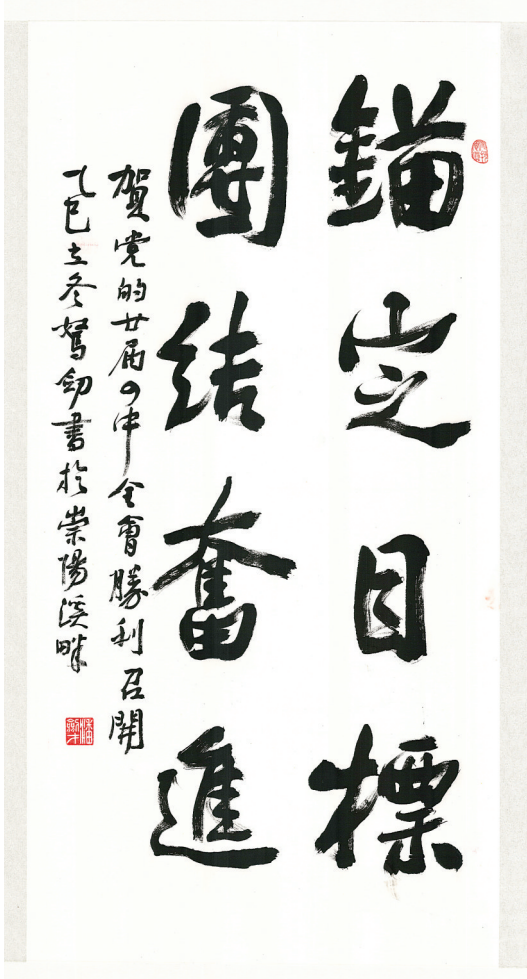 錨定目標
團結奮進
賀党的廿届四中全會勝利召開
乙巳立冬駑劒書於崇陽溪畔